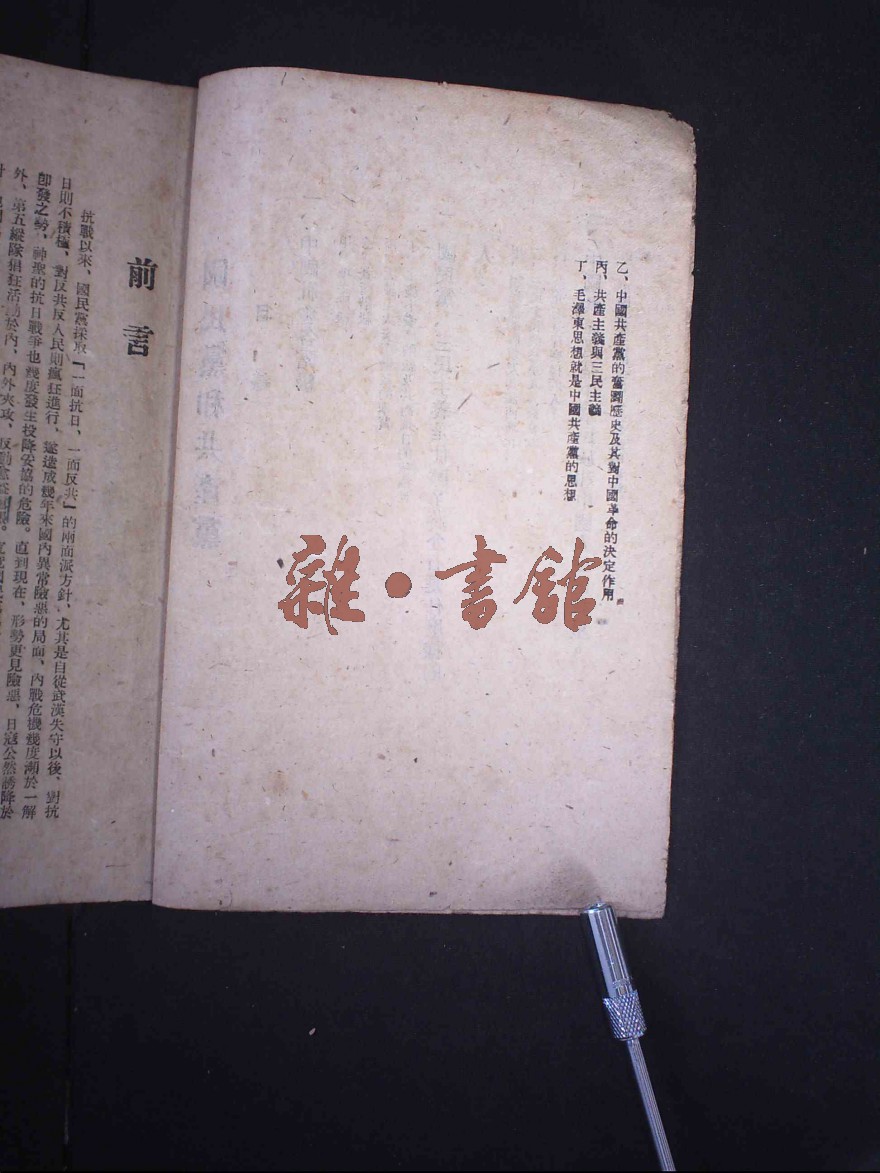 乙、中國共產黨的奮鬪歷史及其對中國革命的決定作用
丙、共產主義與三民主義
丁、毛澤東思想就是中國共產黨的思想
雜·書館
前言
抗戰以來、國民黨採取『一面抗日、一面反共』的兩面派方針、尤其是自從武漢失守以後、對抗
日則不積極、對反共反人民則瘋狂進行、遂造成幾年來國內異常險惡的局面、內戰危機幾度瀕於一觸
卽發之勢、神聖的抗日戰爭也幾度發生投降妥協的危險。直到現在、形勢更見險惡、日寇公然誘降於
外、第五縱隊猖狂活動於內、內外夾攻、